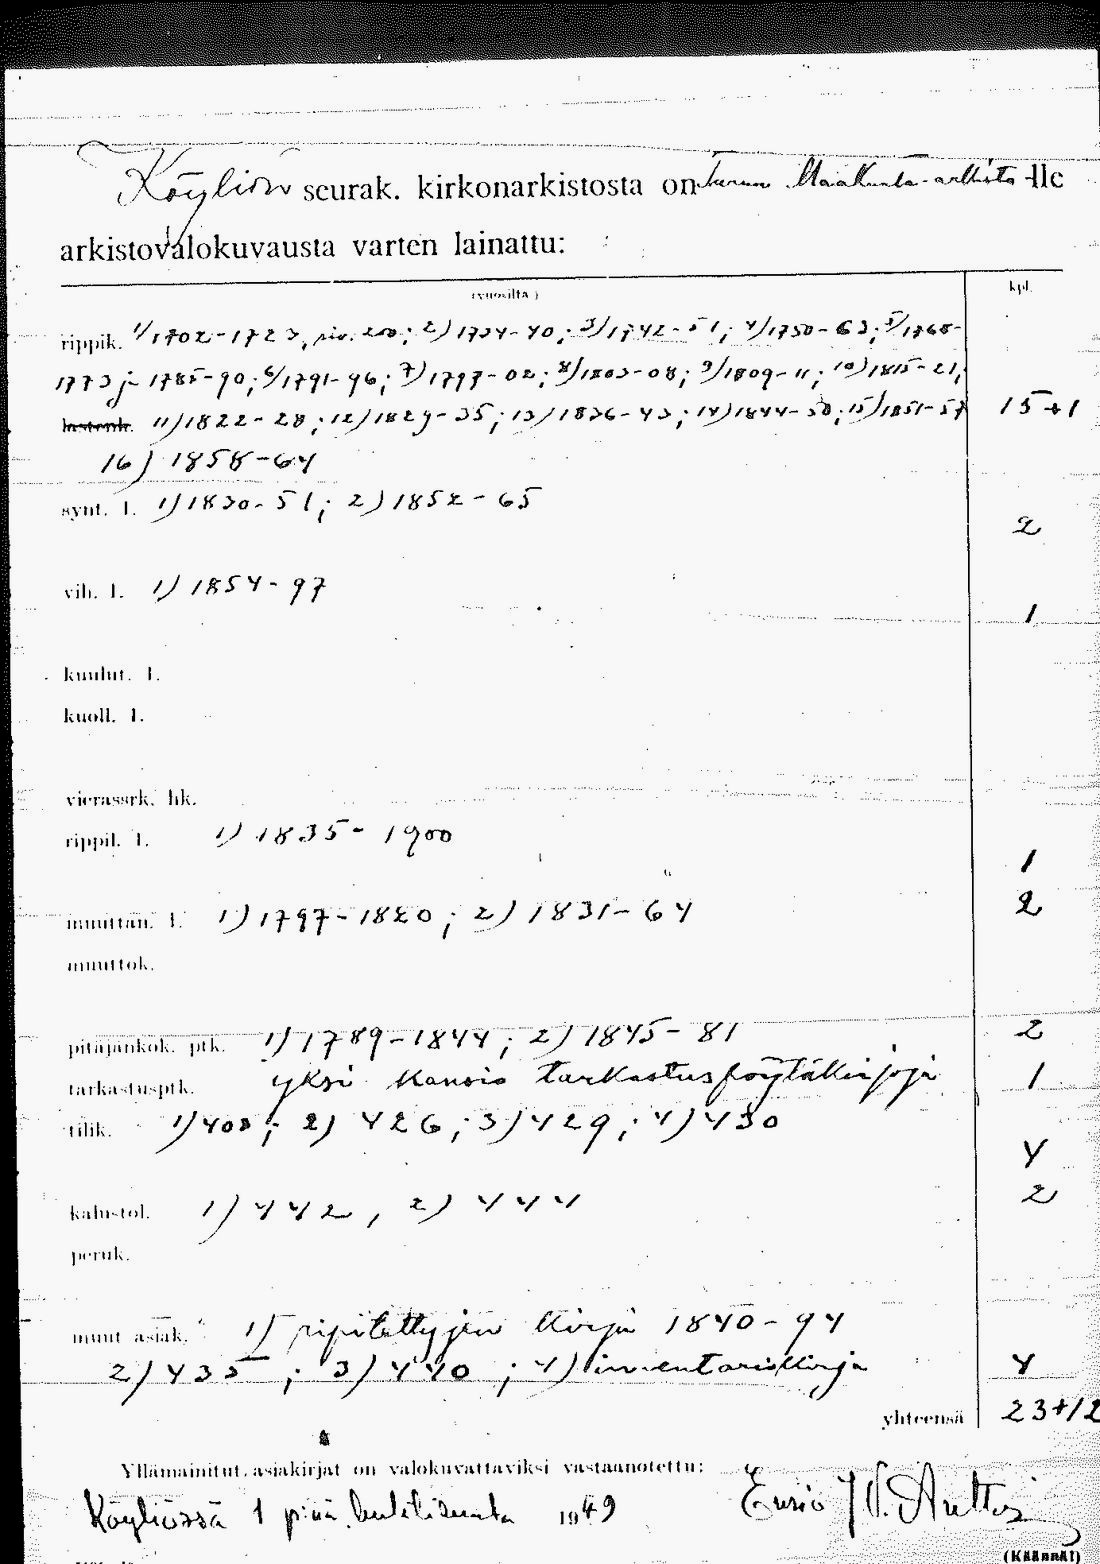 Köyliön seurak. kirkonarkistosta on Turun Maakunta-arkisto-lle
arkistovalokuvausta varten lainattu:
(vuosilta) kpl.
rippik. 1) 1702-1723, siv. 200; 2) 1734-40; 3) 1742-51; 4) 1750-63; 5) 1768-
1773 j 1785-90; 6) 1791-96; 7) 1797-02; 8) 1803-08; 9) 1809-11; 10) 1815-21;
lastenk. 11) 1822-28; 12) 1829-35; 13) 1836-43; 14) 1844-50; 15) 1851-57 15+1
16) 1858-64
synt. l. 1) 1830-51; 2) 1852-65 2
vih. l. 1) 1854-97 1
kuulut. l.
kuoll. l.
vierassrk. hk.
rippil. l. 1) 1835-1900 1
muuttan. l. 1) 1797-1820; 2) 1831-64 2
muuttok.
pitäjänkok. ptk. 1) 1789-1844; 2) 1845-81 2
tarkastusptk. yksi kansio tarkastuspöytäkirjoja 1
tilik. 1) 408; 2) 426; 3) 429; 4) 430 4
kalustol. 1) 442, 2) 444 2
peruk.
muut asiak. 1) ripitettyjen kirja 1840-94
2) 435; 3) 440; 4) inventariokirja 4
yhteensä 23+12
Yllämainitut asiakirjat on valokuvattaviksi vastaanotettu:
Köyliössä 1 p:nä huhtikuuta 1949
(Käännä!)